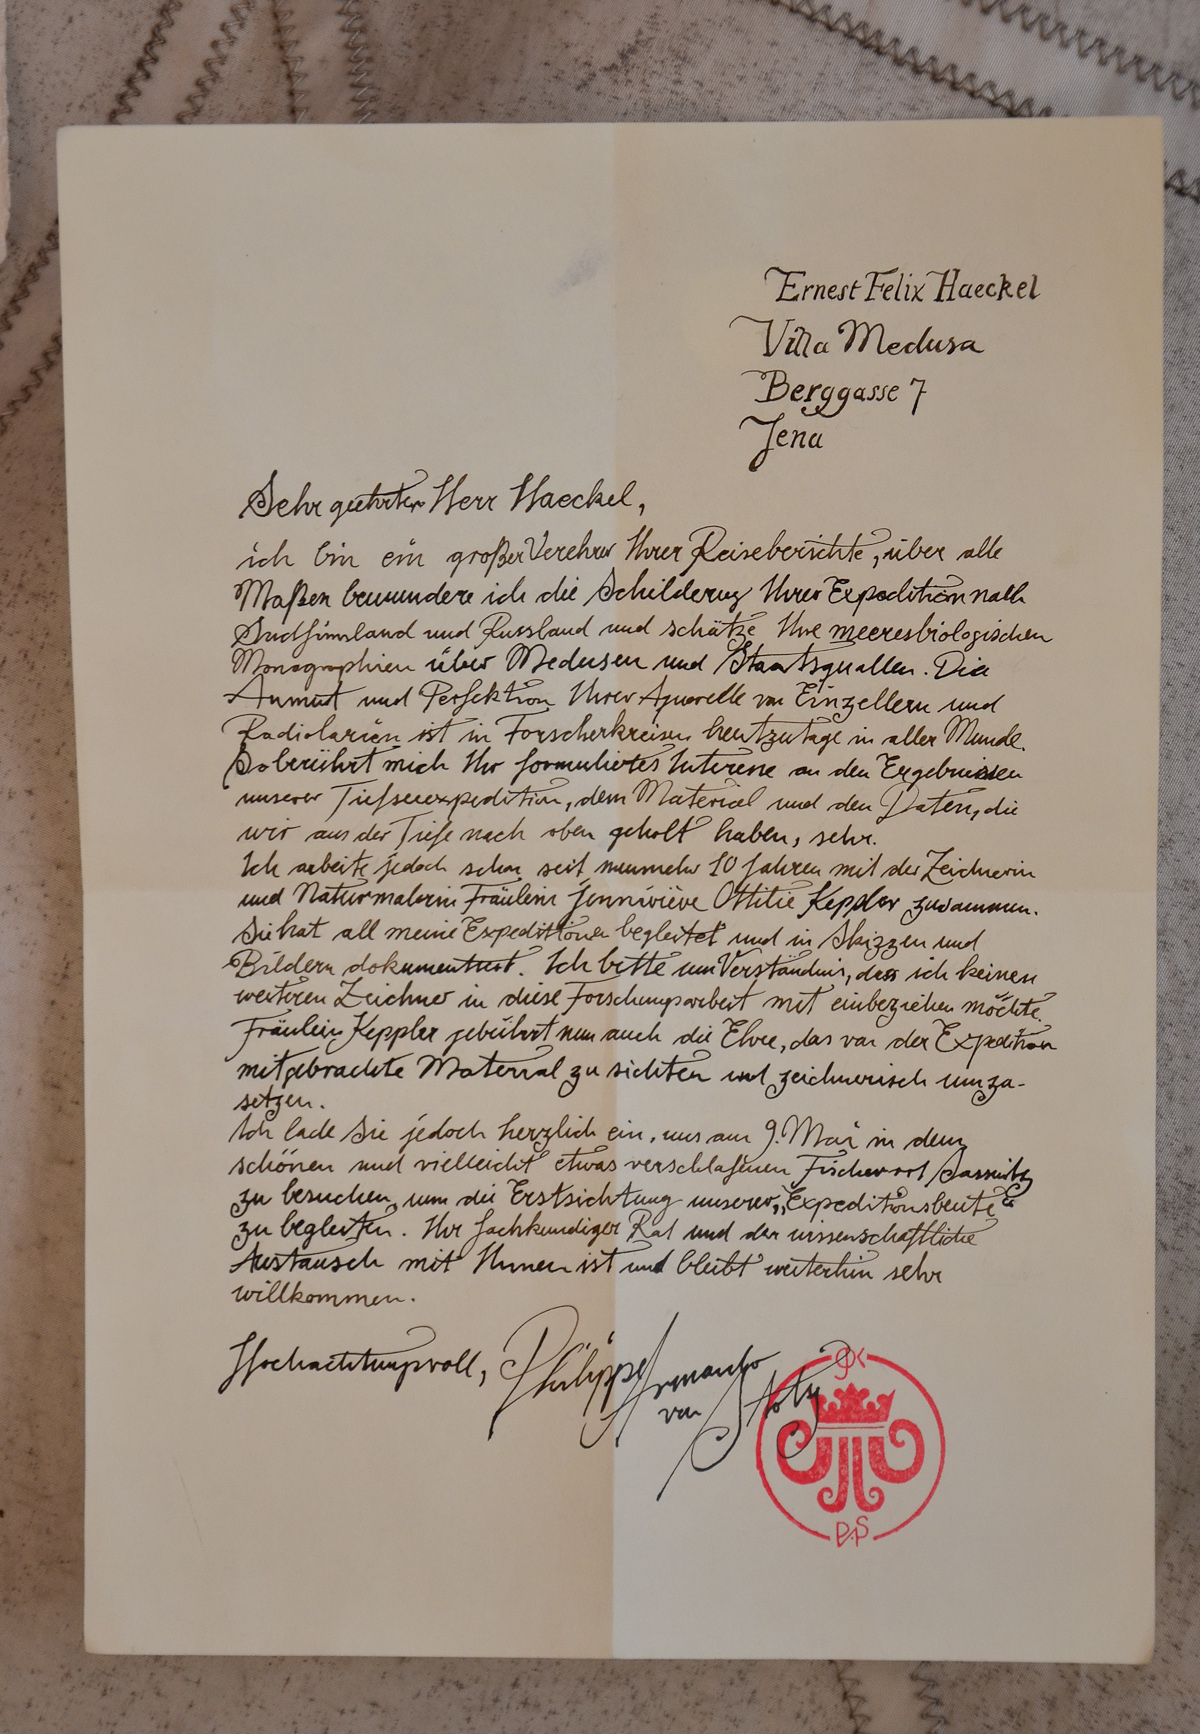 Ernest Felix Haeckel
Villa Medusa
Berggasse 7
Jena
Sehr geehrter Herr Haeckel,
ich bin ein großer Verehrer Ihrer Reiseberichte, über alle
Maßen bewundere ich die Schilderung Ihrer Expedition nach
Südfinnland und Russland und schätze Ihre meeresbiologischen
Monographien über Medusen und Staatsquallen. Die
Anmut und Perfektion Ihrer Aquarelle von Einzellern und
Radiolarien ist in Forscherkreisen heutzutage in aller Munde.
So berührt mich Ihr formuliertes Interesse an den Ergebnissen
unserer Tiefseeexpedition, dem Material und den Daten, die
wir aus der Tiefe nach oben geholt haben, sehr.
Ich arbeite jedoch schon seit nunmehr 10 Jahren mit der Zeichnerin
und Naturmalerin Fräulein Jenniviève Ottilie Keppler zusammen.
Sie hat all meine Expeditionen begleitet und in Skizzen und
Bildern dokumentiert. Ich bitte um Verständnis, dass ich keinen
weiteren Zeichner in diese Forschungsarbeit mit einbeziehen möchte.
Fräulein Keppler gebührt nun auch die Ehre, das von der Expedition
mitgebrachte Material zu sichten und zeichnerisch umzu-
setzen.
Ich lade Sie jedoch herzlich ein, uns am 9. Mai in dem
schönen und vielleicht etwas verschlafenen Fischerort Sassnitz
zu besuchen, um die Erstsichtung unserer „Expeditionsbeute“
zu begleiten. Ihr fachkundiger Rat und der wissenschaftliche
Austausch mit Ihnen ist und bleibt weiterhin sehr
willkommen.
Hochachtungsvoll, Philippe Armando
von Stolz
PAS